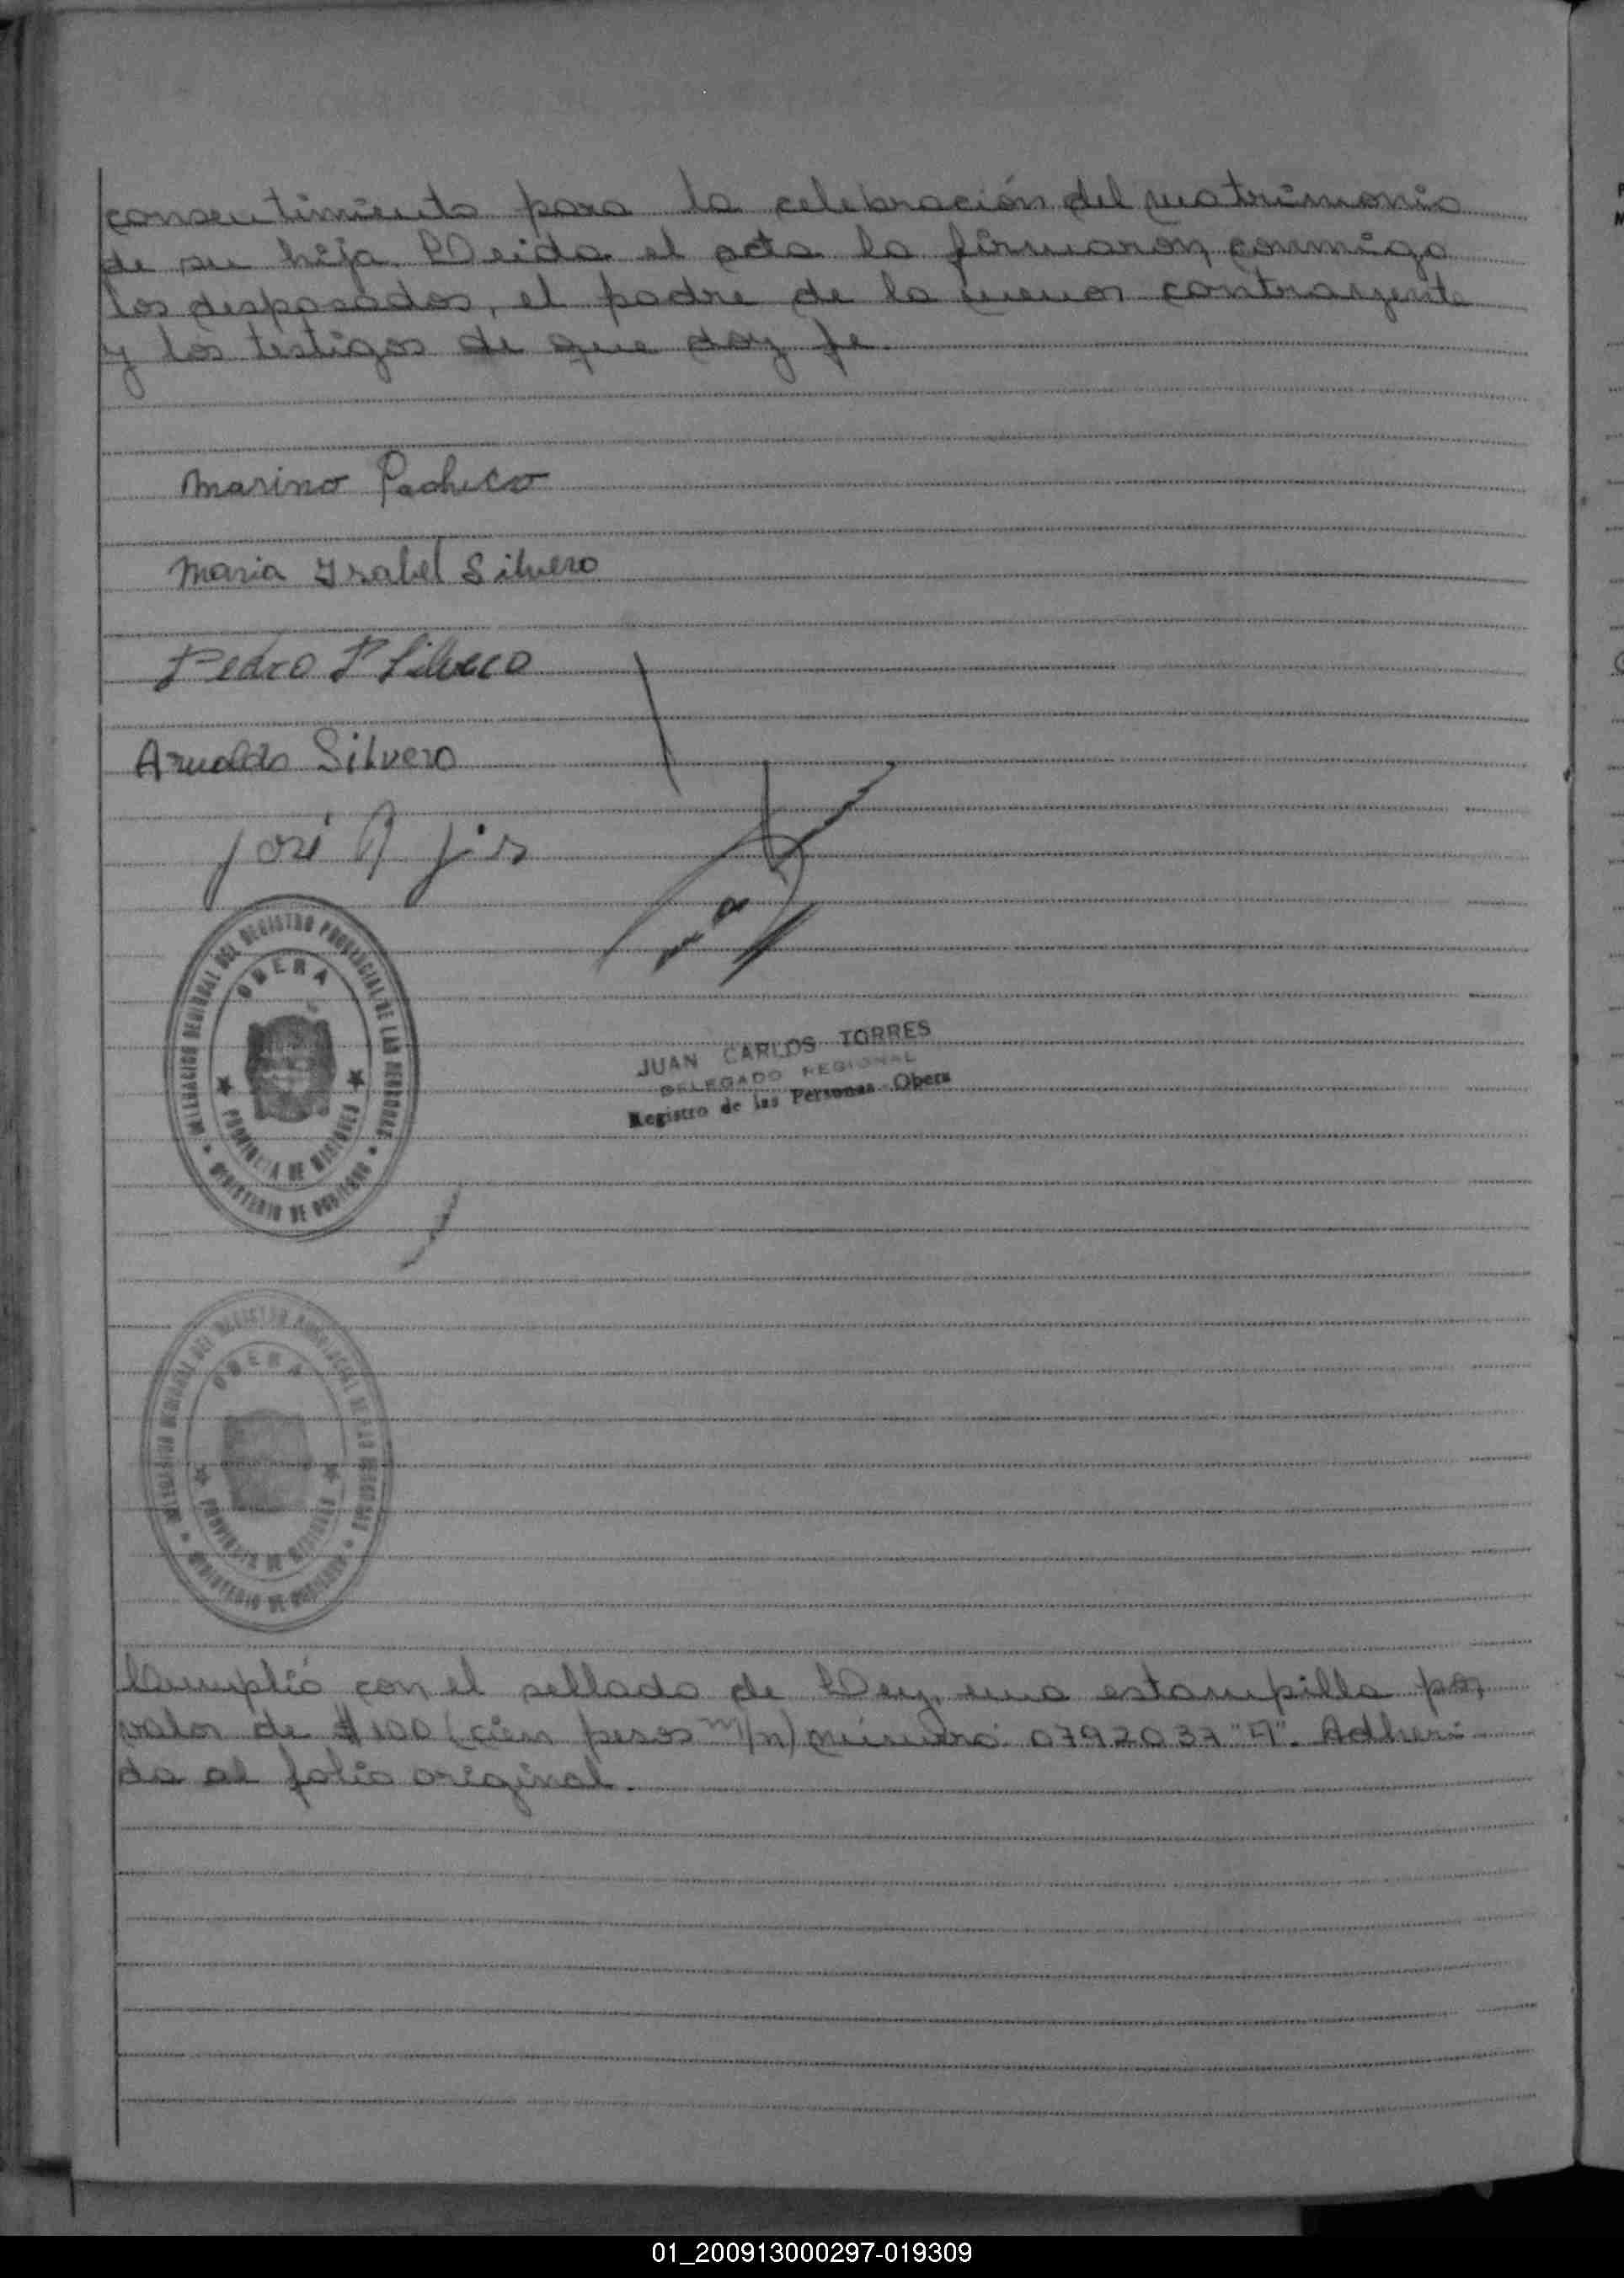 consentimiento para la celebración del matrimonio
de su hija. Leida el acta la firmaron, conmigo
los desposados, el padre de la menor contrayente
y los testigos de que doy fe.
Marino Pacheco
Maria Ysabel Silvero
Pedro P Silvero
Arnoldo Silvero
José A
DELEGACION REGIONAL DEL REGISTRO PROVINCIAL DE LAS PERSONAS
OBERA
PROVINCIA DE MISIONES
MINISTERIO DE GOBIERNO
JUAN CARLOS TORRES
DELEGADO REGIONAL
Registro de las Personas - Obera
DELEGACION REGIONAL DEL REGISTRO PROVINCIAL DE LAS PERSONAS
OBERA
PROVINCIA DE MISIONES
MINISTERIO DE GOBIERNO
Cumplió con el sellado de Ley, una estampilla por
valor de $ 100 (cien pesos m/n) número: 0792037 "A". Adheri-
da al folio original.
01_200913000297-019309